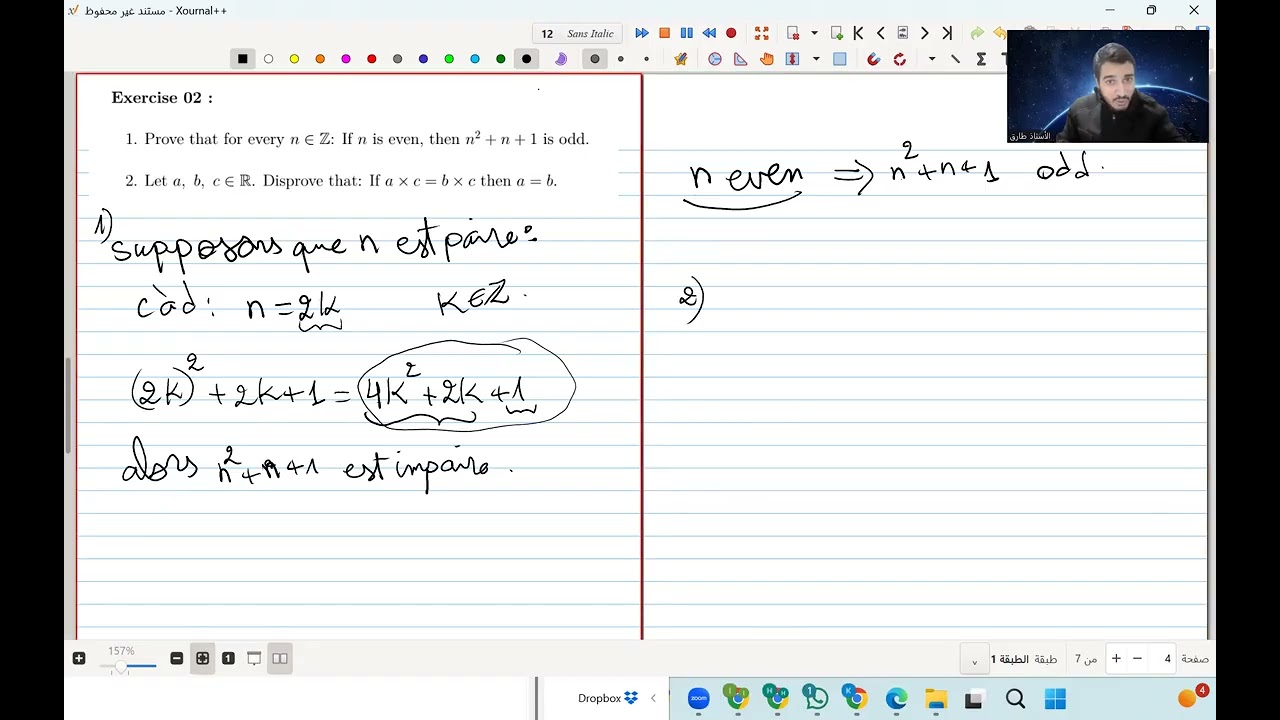 مستند غير محفوظ - Xournal++
12 Sans Italic
الأستاذ طارق
Exercise 02 :
1. Prove that for every n ∈ ℤ: If n is even, then n² + n + 1 is odd.
2. Let a, b, c ∈ ℝ. Disprove that: If a × c = b × c then a = b.
1)
supposons que n est paire:
càd: n = 2k k ∈ ℤ.
(2k)² + 2k + 1 = 4k² + 2k + 1
alors n² + n + 1 est impaire.
n even ⇒ n² + n + 1 odd.
2)
157%
1
الطبقة 1 طبقة
من 7
4 صفحة
Dropbox
zoom
4